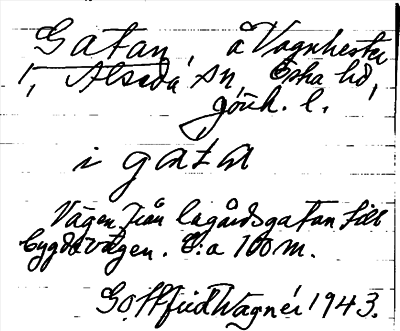 Gatan, å Vagnhester
1, Alseda sn, Östra hd,
Jönk. l.
i gata
Vägen från lagårdsgatan till
bygdevägen. C:a 100 m.
Gottfrid Wagnér 1943.